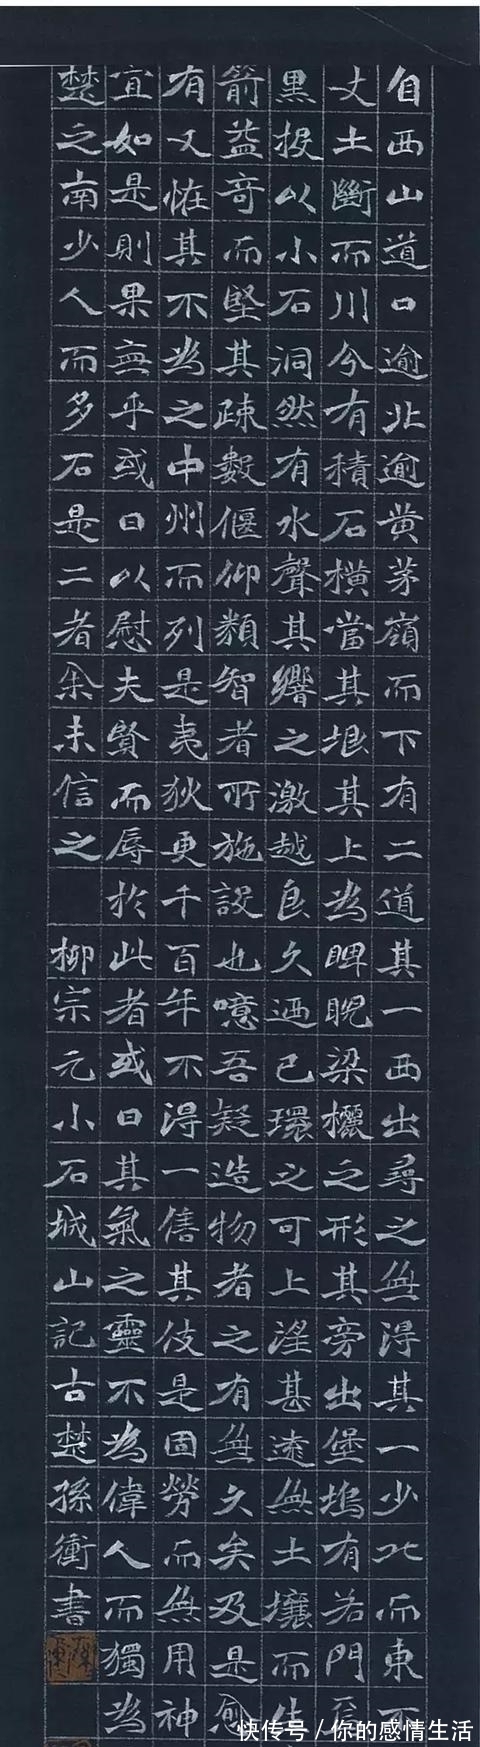 自西山道口逾北逾黄茅嶺而下有二道其一西出尋之無得其一少北而東不
丈土斷而川分有積石橫當其垠其上為睥睨梁欐之形其旁出堡塢有若門焉
黑投以小石洞然有水聲其響之激越良久迺已環之可上望甚遠無土壤而生
箭益奇而堅其疎數偃仰類智者所施設也噫吾疑造物者之有無久矣及是愈
有又恠其不為之中州而列是夷狄更千百年不得一售其伎是固勞而無用神
宜如是則果無乎或曰以慰夫賢而辱於此者或曰其氣之靈不為偉人而獨為
楚之南少人而多石是二者余未信之 柳宗元小石城山記古楚孫衝書
快传号/你的感情生活